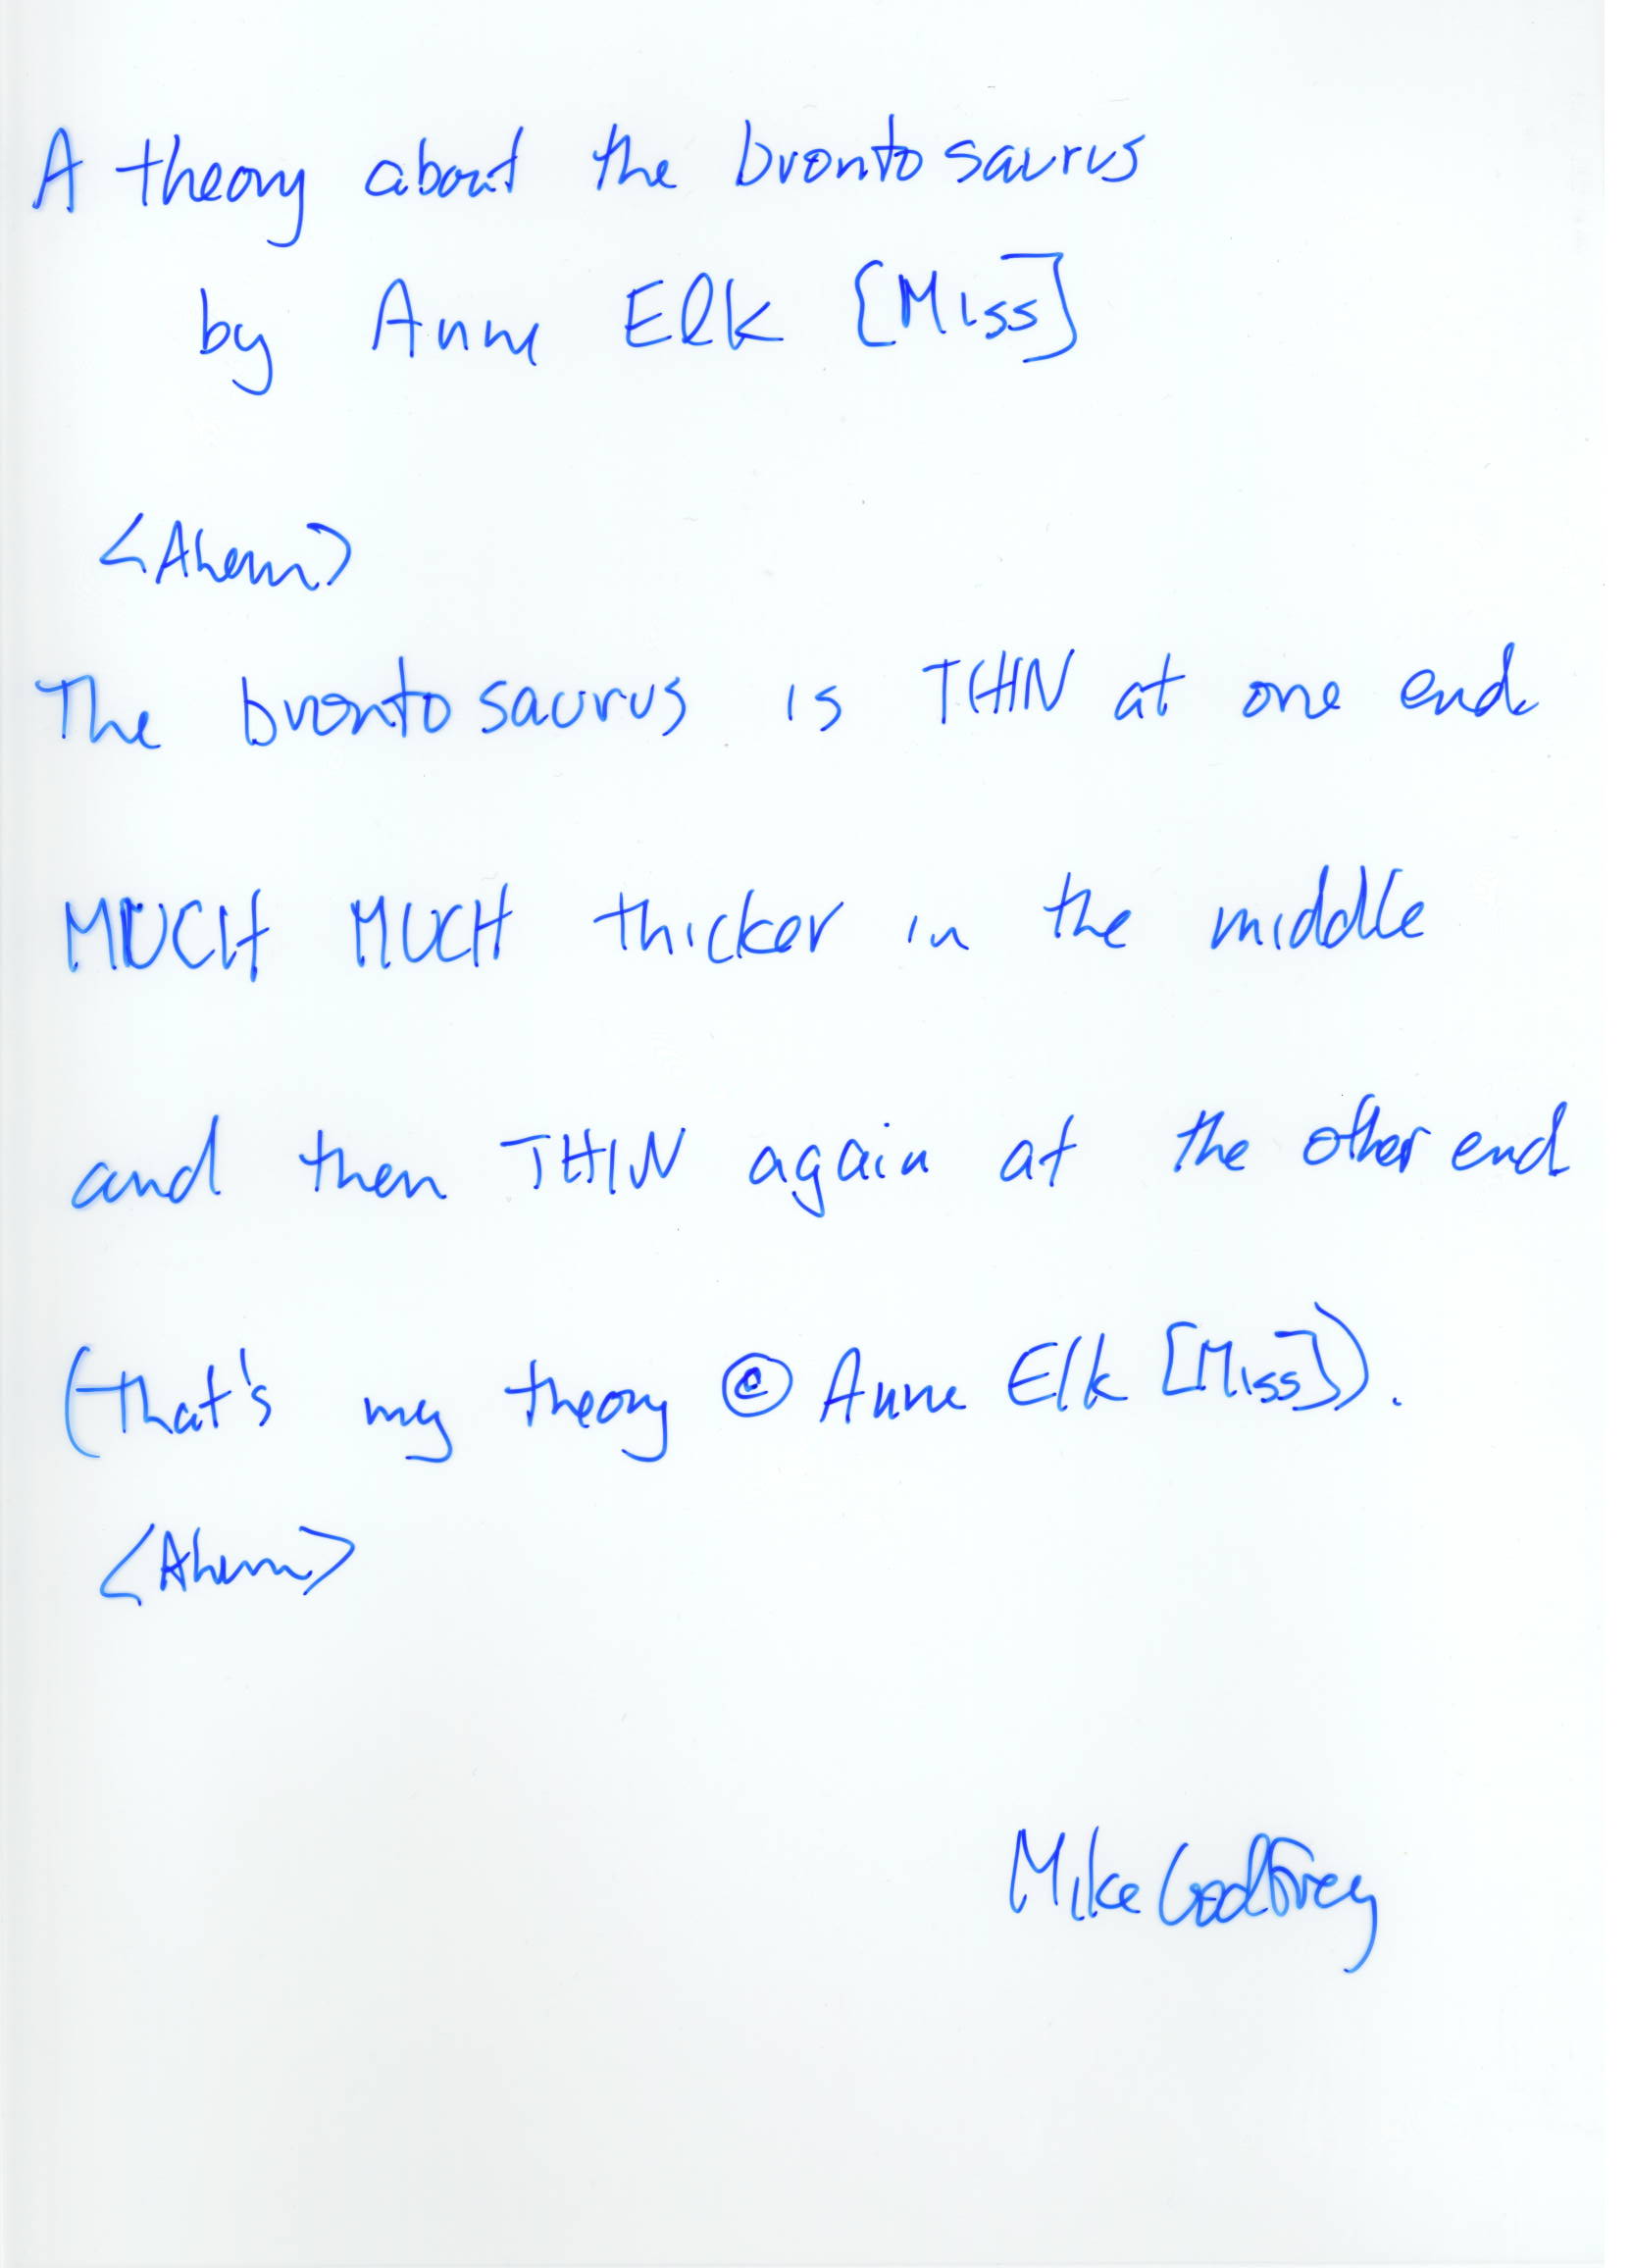 A theory about the brontosaurus
by Anne Elk [Miss]
<Ahem>
The brontosaurus is THIN at one end
MUCH MUCH thicker in the middle
and then THIN again at the other end
(that's my theory © Anne Elk [Miss]).
<Ahem>
Mike Godfrey